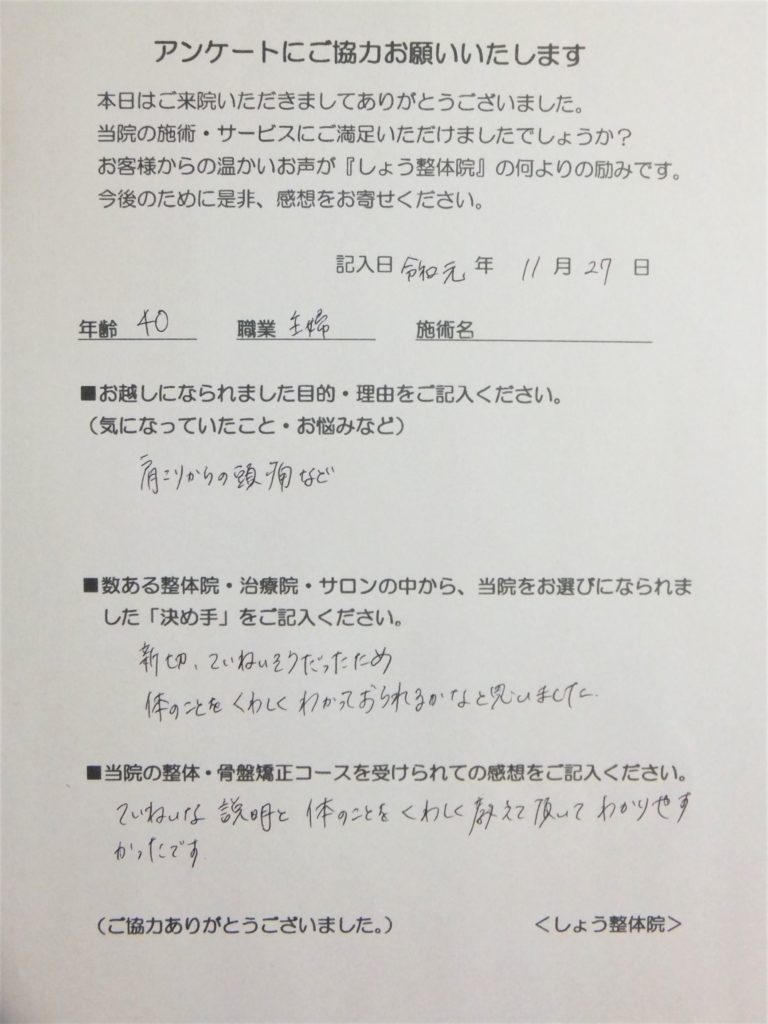 アンケートにご協力お願いいたします
本日はご来院いただきましてありがとうございました。
当院の施術・サービスにご満足いただけましたでしょうか？
お客様からの温かいお声が『しょう整体院』の何よりの励みです。
今後のために是非、感想をお寄せください。
記入日 令和元 年 11 月 27 日
年齢 40 職業 主婦 施術名
■お越しになられました目的・理由をご記入ください。
（気になっていたこと・お悩みなど）
肩こりからの頭痛など
■数ある整体院・治療院・サロンの中から、当院をお選びになられま
した「決め手」をご記入ください。
新切、ていねいそうだったため
体のことをくわしくわかっておられるかなと思いました。
■当院の整体・骨盤矯正コースを受けられての感想をご記入ください。
ていねいな説明と体のことをくわしく教えて頂いてわかりやす
かったです。
（ご協力ありがとうございました。）
＜しょう整体院＞